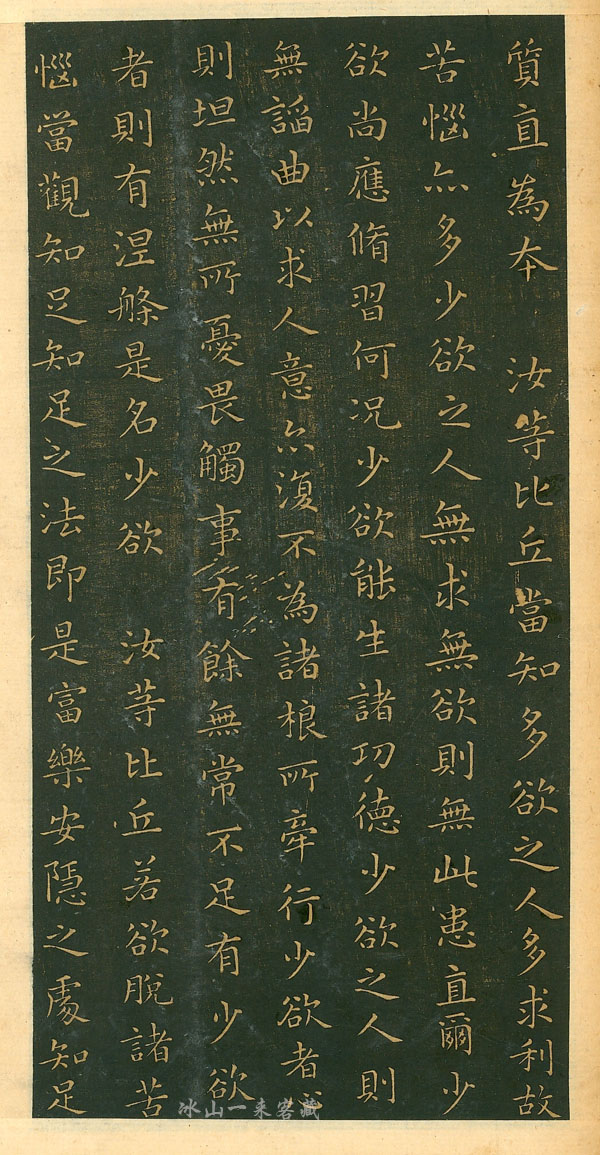 質直為本　汝等比丘當知多欲之人多求利故
苦惱亦多少欲之人無求無欲則無此患直爾少
欲尚應脩習何況少欲能生諸功德少欲之人則
無謟曲以求人意亦復不為諸根所牽行少欲者心
則坦然無所憂畏觸事有餘無常不足有少欲
者則有涅槃是名少欲　汝等比丘若欲脫諸苦
惱當觀知足知足之法即是富樂安隱之處知足
冰山一来客藏